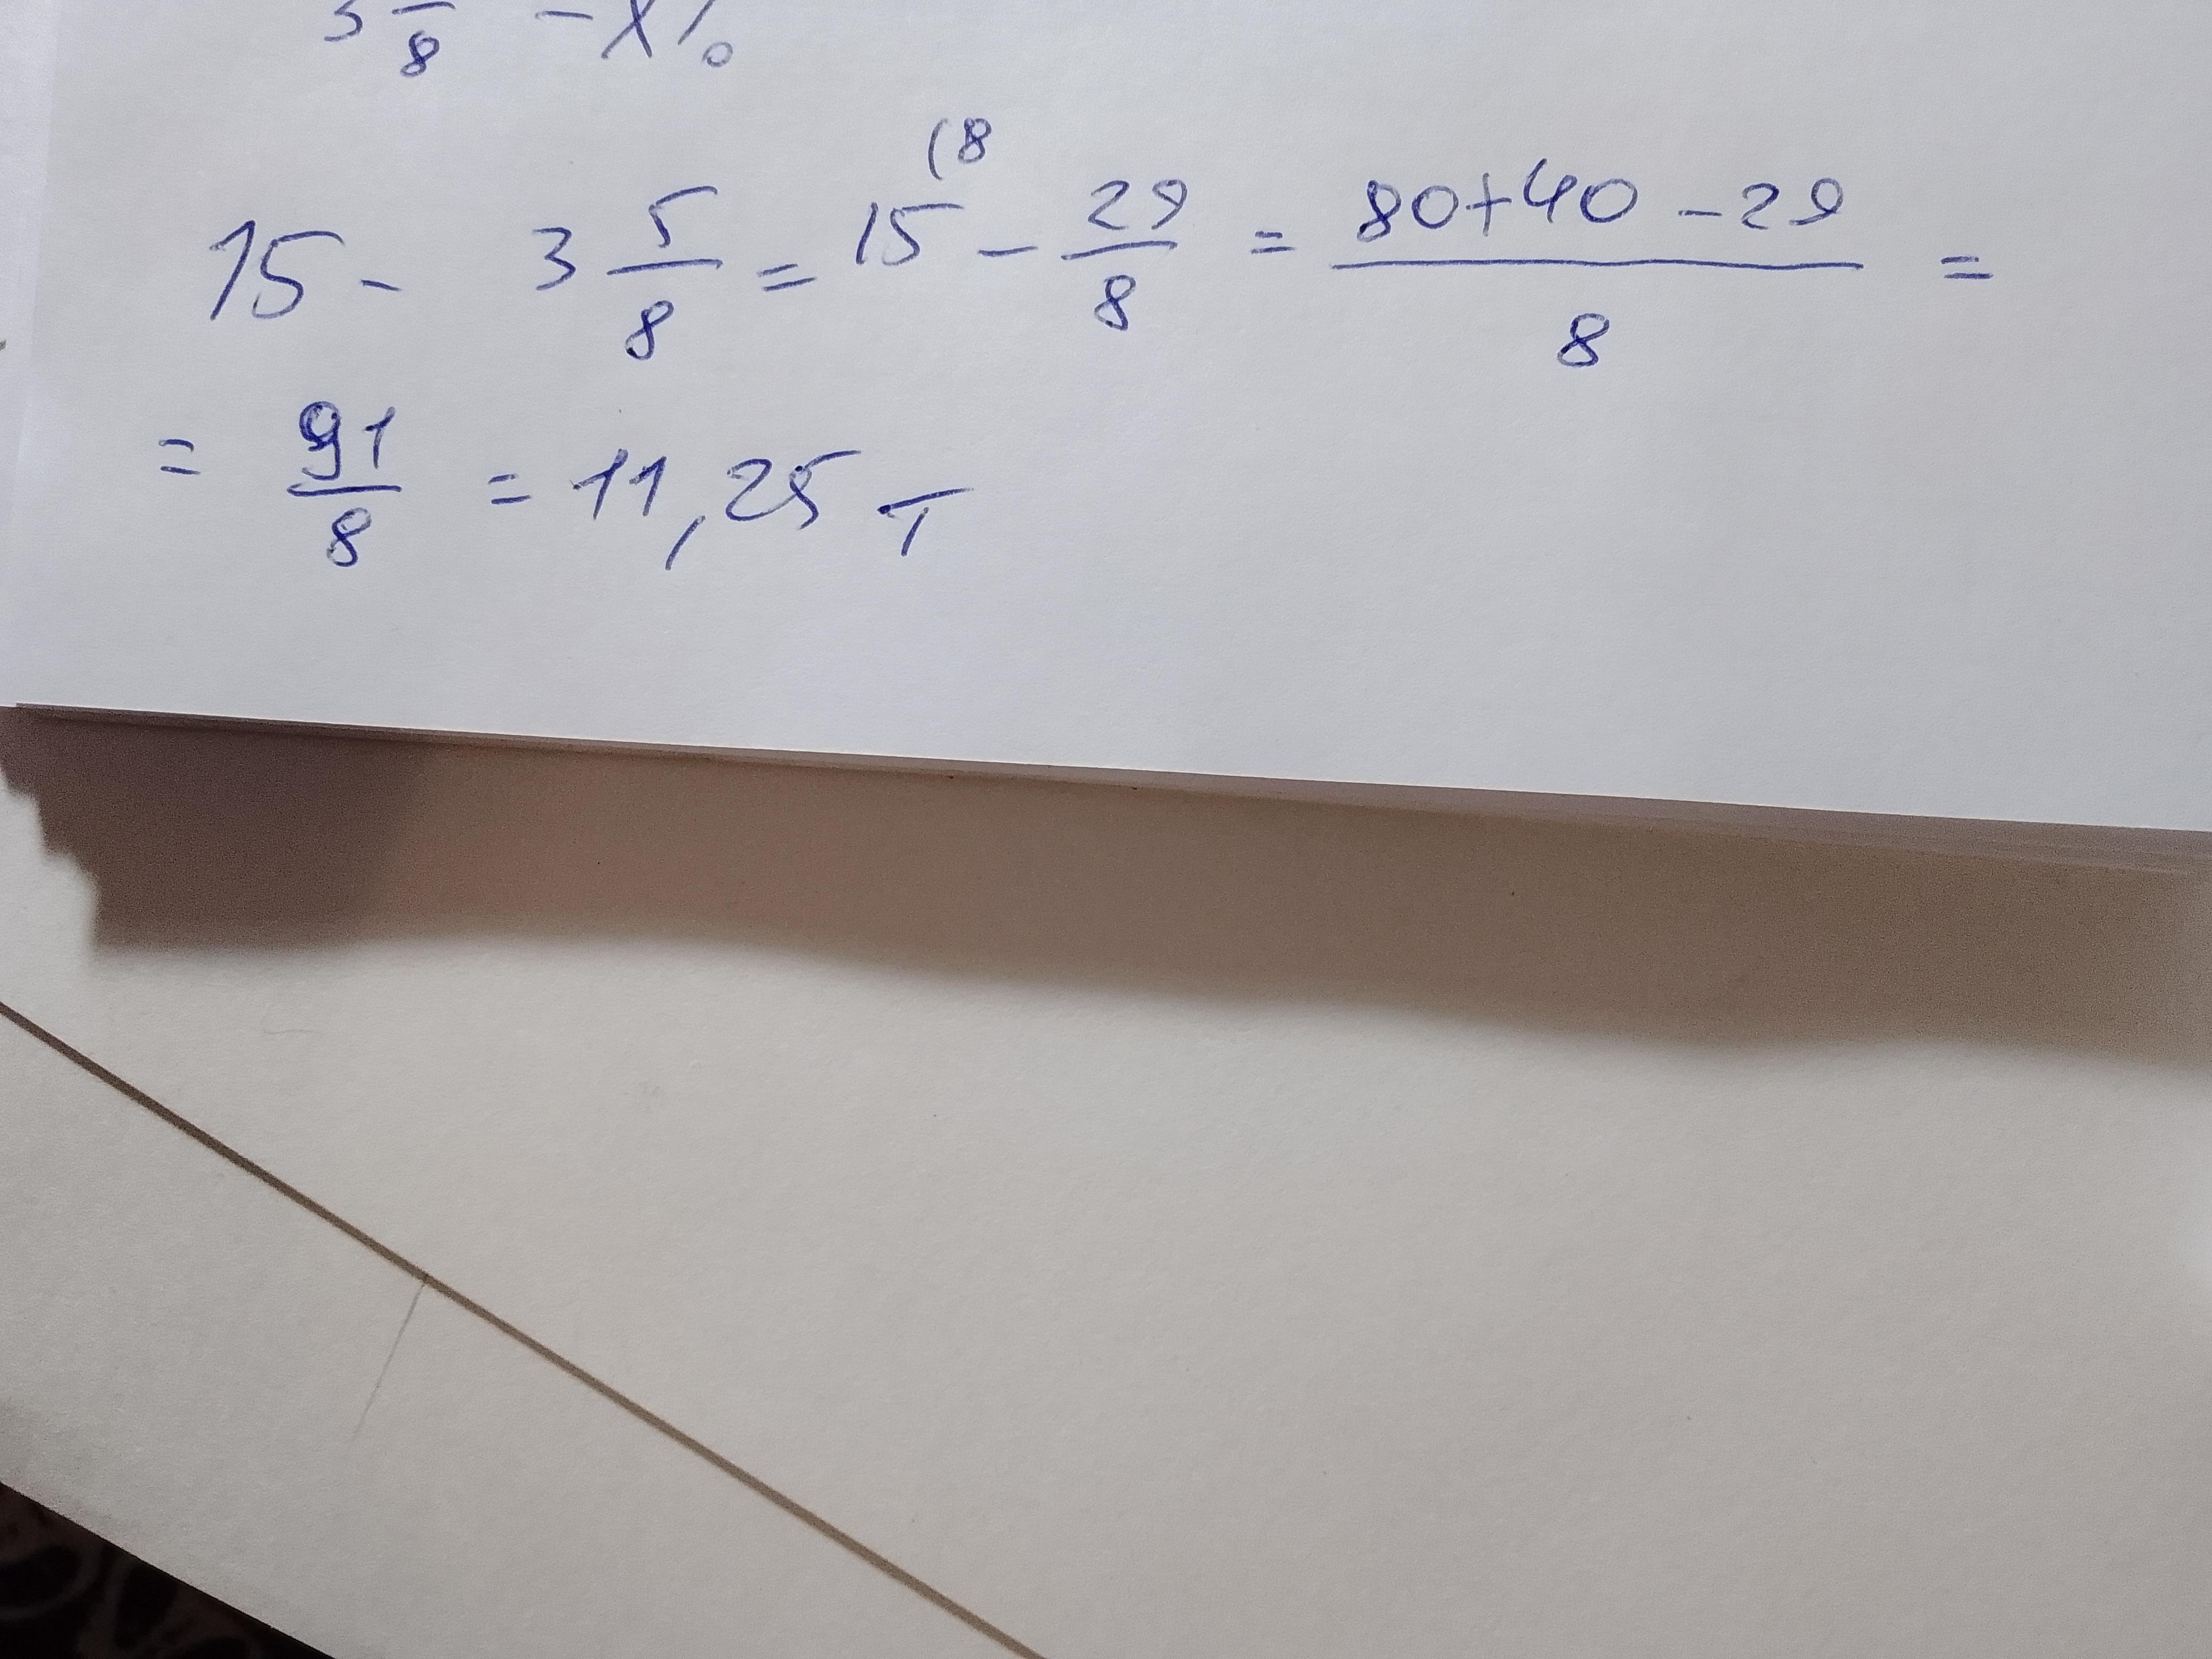 3 5/8 - x%
15 - 3 5/8 = 15 (8 - 29/8 = (80+40-29)/8 =
= 91/8 = 11,25 т